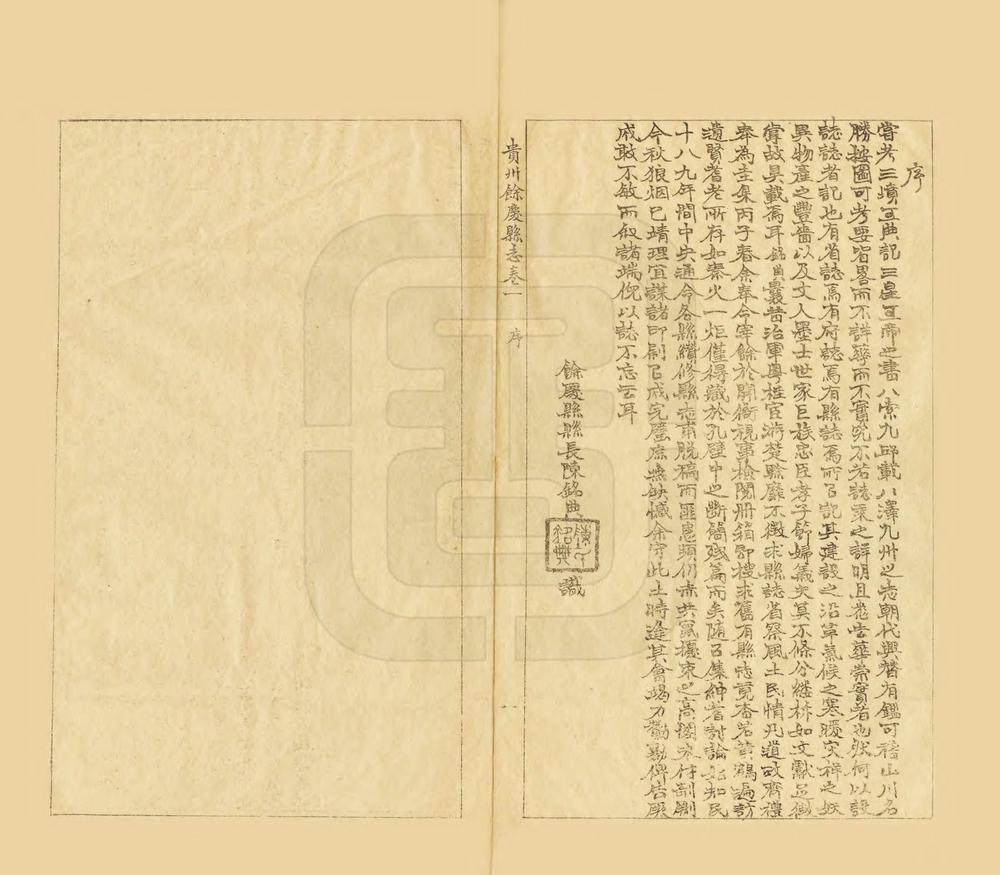 序
嘗考三墳五典記三皇五帝之書八索九邱載八澤九州之志朝代興替有鑑可稽山川名
勝按圖可考要皆畧而不詳華而不實究不若誌乘之詳明且悉去華崇實者也然何以設
誌誌者記也有省誌焉有府誌焉有縣誌焉所以記其建設之沿革氣候之寒暖灾祥之妖
異物產之豐嗇以及文人墨士世家巨族忠臣孝子節婦義夫莫不條分縷析如文獻足徵
掌故具載焉耳銘典曩昔治軍粵桂官游楚黔靡不徵求縣誌省察風土民情凡道政齊禮
奉為圭臬丙子春余奉令宰餘於開衙視事檢閱冊箱即搜求舊有縣志竟杳若黃鶴遍訪
遺賢耆老所存如秦火一炬僅得藏於孔壁中之斷簡殘篇而矣随召集紳耆討論始知民
十八九年間中央通令各縣續修縣志甫脫稿而匪患頻仍赤共竄擾束之高閣未付剞劂
今秋狼烟已靖理宜謀諸印刷以成完璧庶無缺憾余守此土時逢其會竭力勷勷俾告厥
成敢不敏而叙諸端倪以誌不忘云耳
餘慶縣縣長陳銘典識
貴州餘慶縣志卷一 序 一